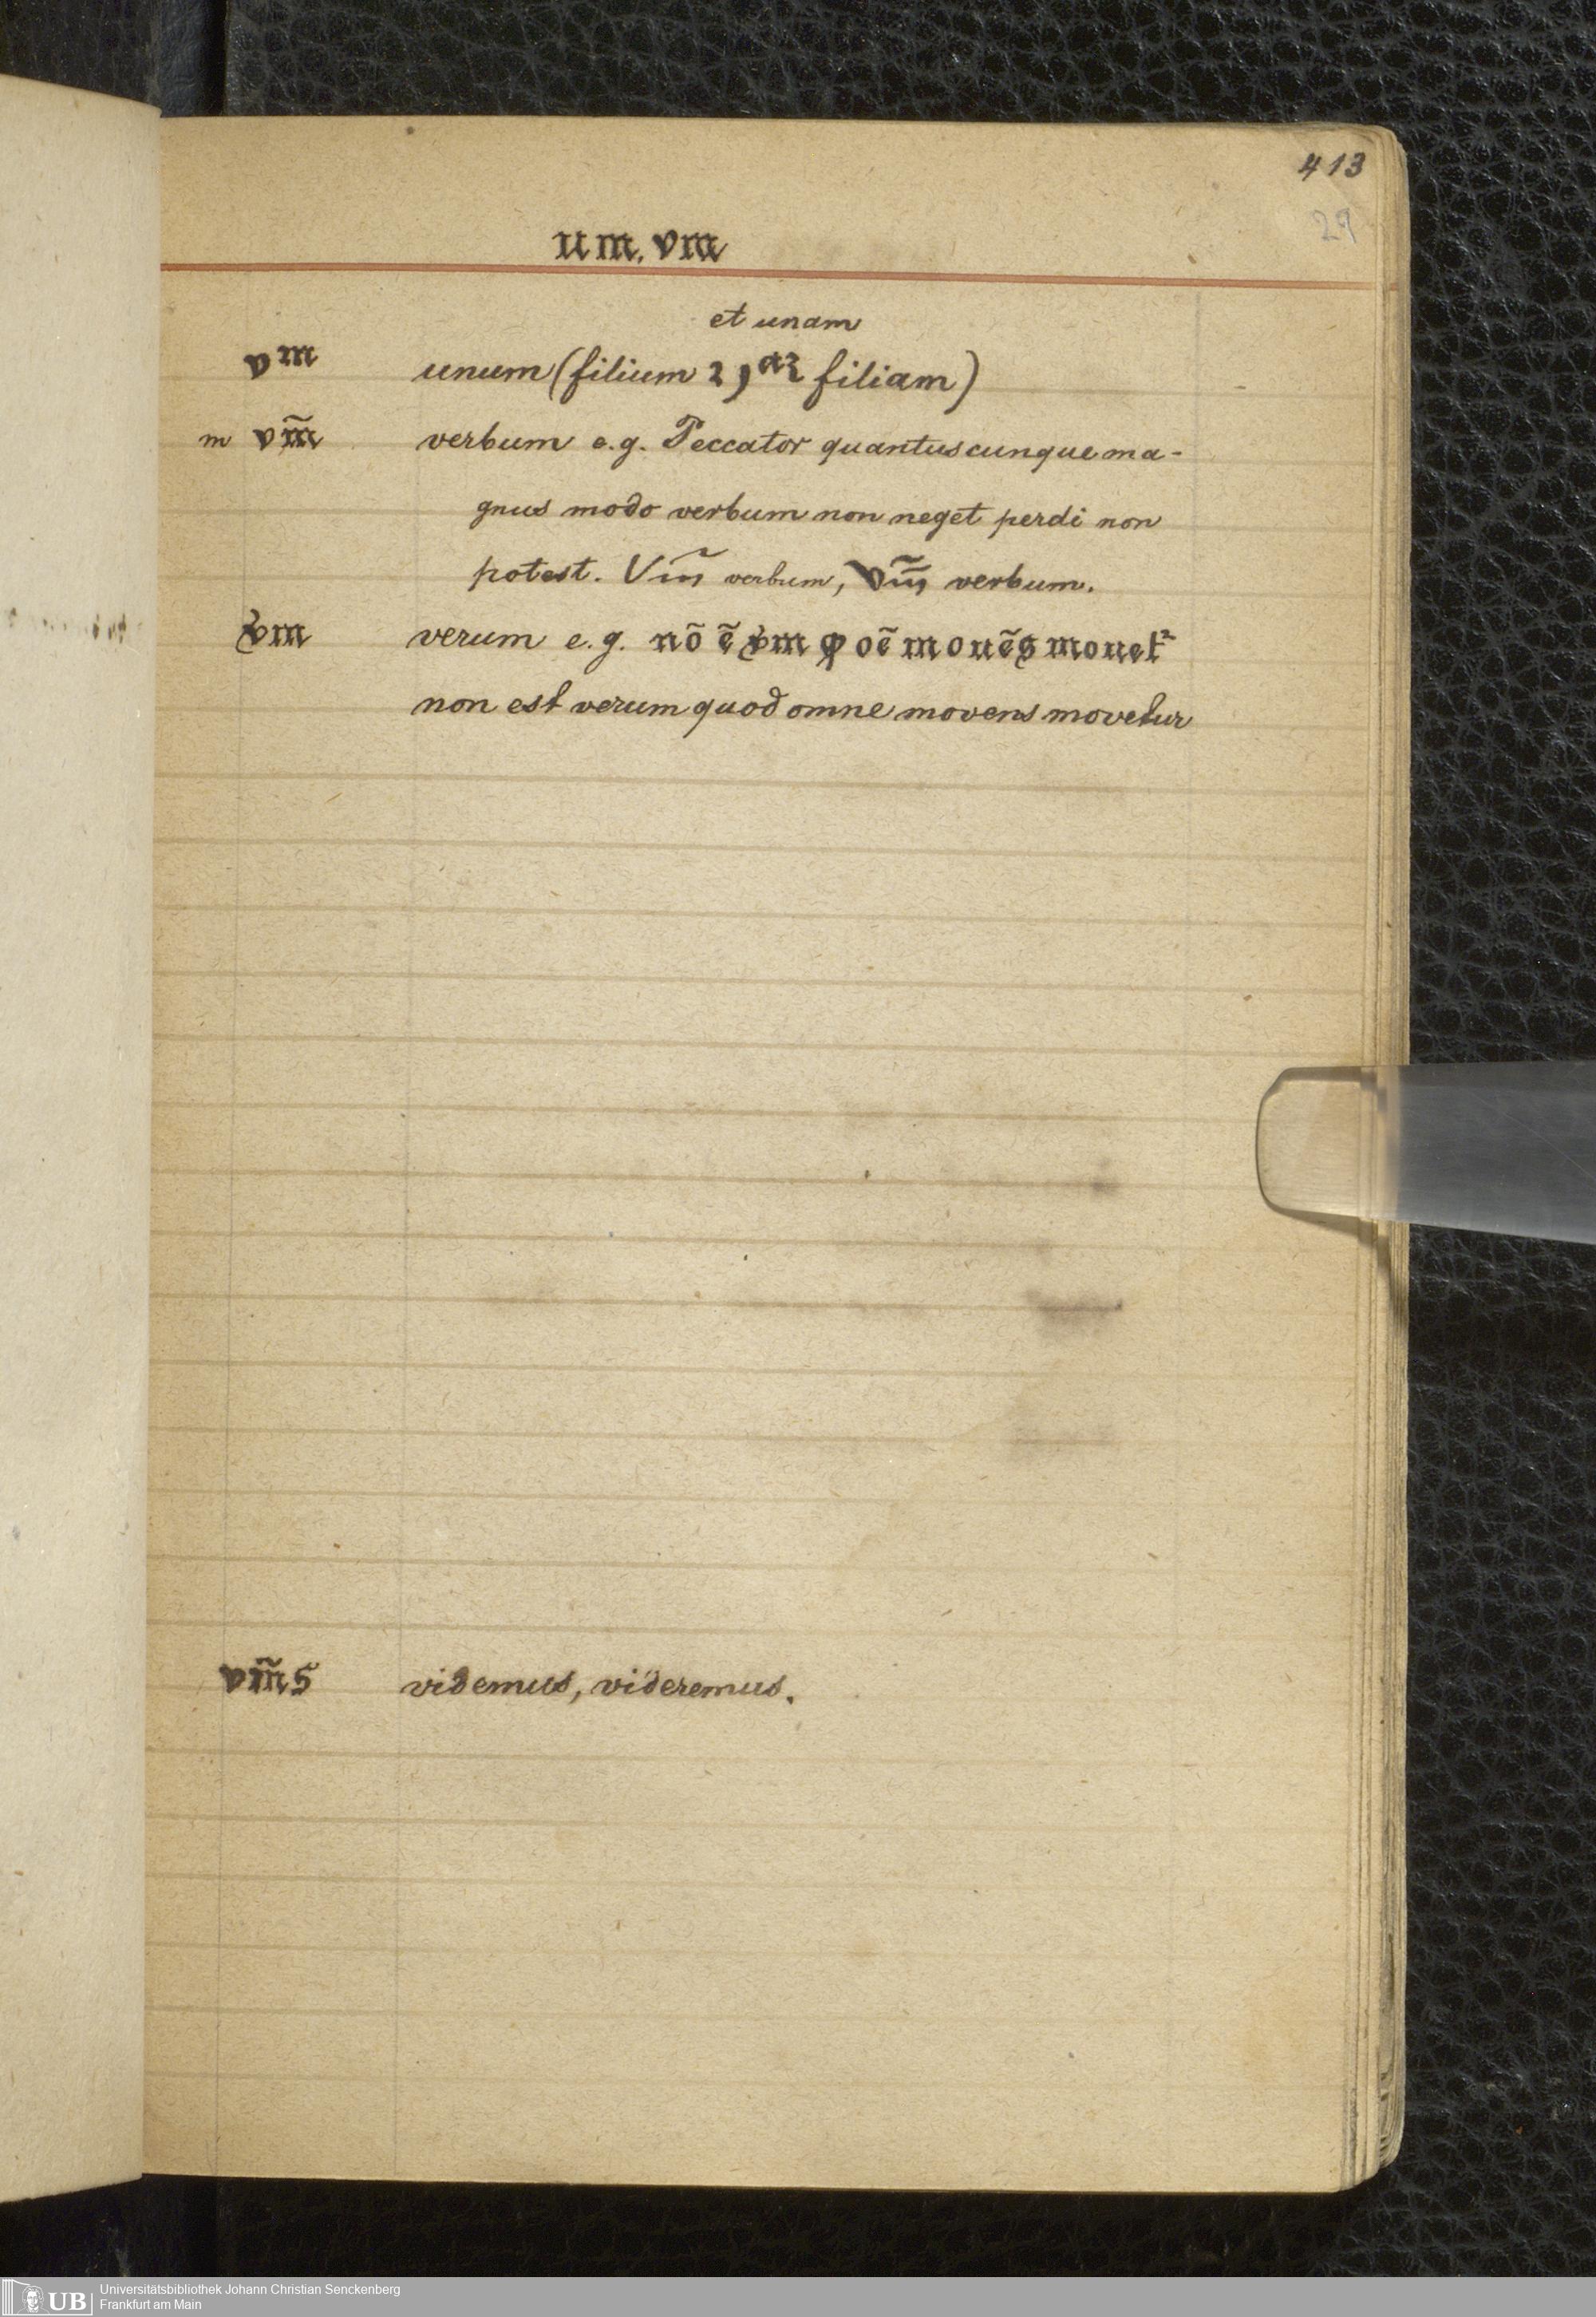 413
29
um. vm
et unam
vᵐ unum (filium filiam)
m vm̃ verbum e.g. Peccator quantuscunque ma-
gnus modo verbum non neget perdi non
potest. Vm̃ verbum, vm̃ verbum.
vm verum e.g. nō ē vm ꝙ oē mouēs mouet²
non est verum quod omne movens movetur
vm̃s videmus, videremus.
UB Universitätsbibliothek Johann Christian Senckenberg
Frankfurt am Main